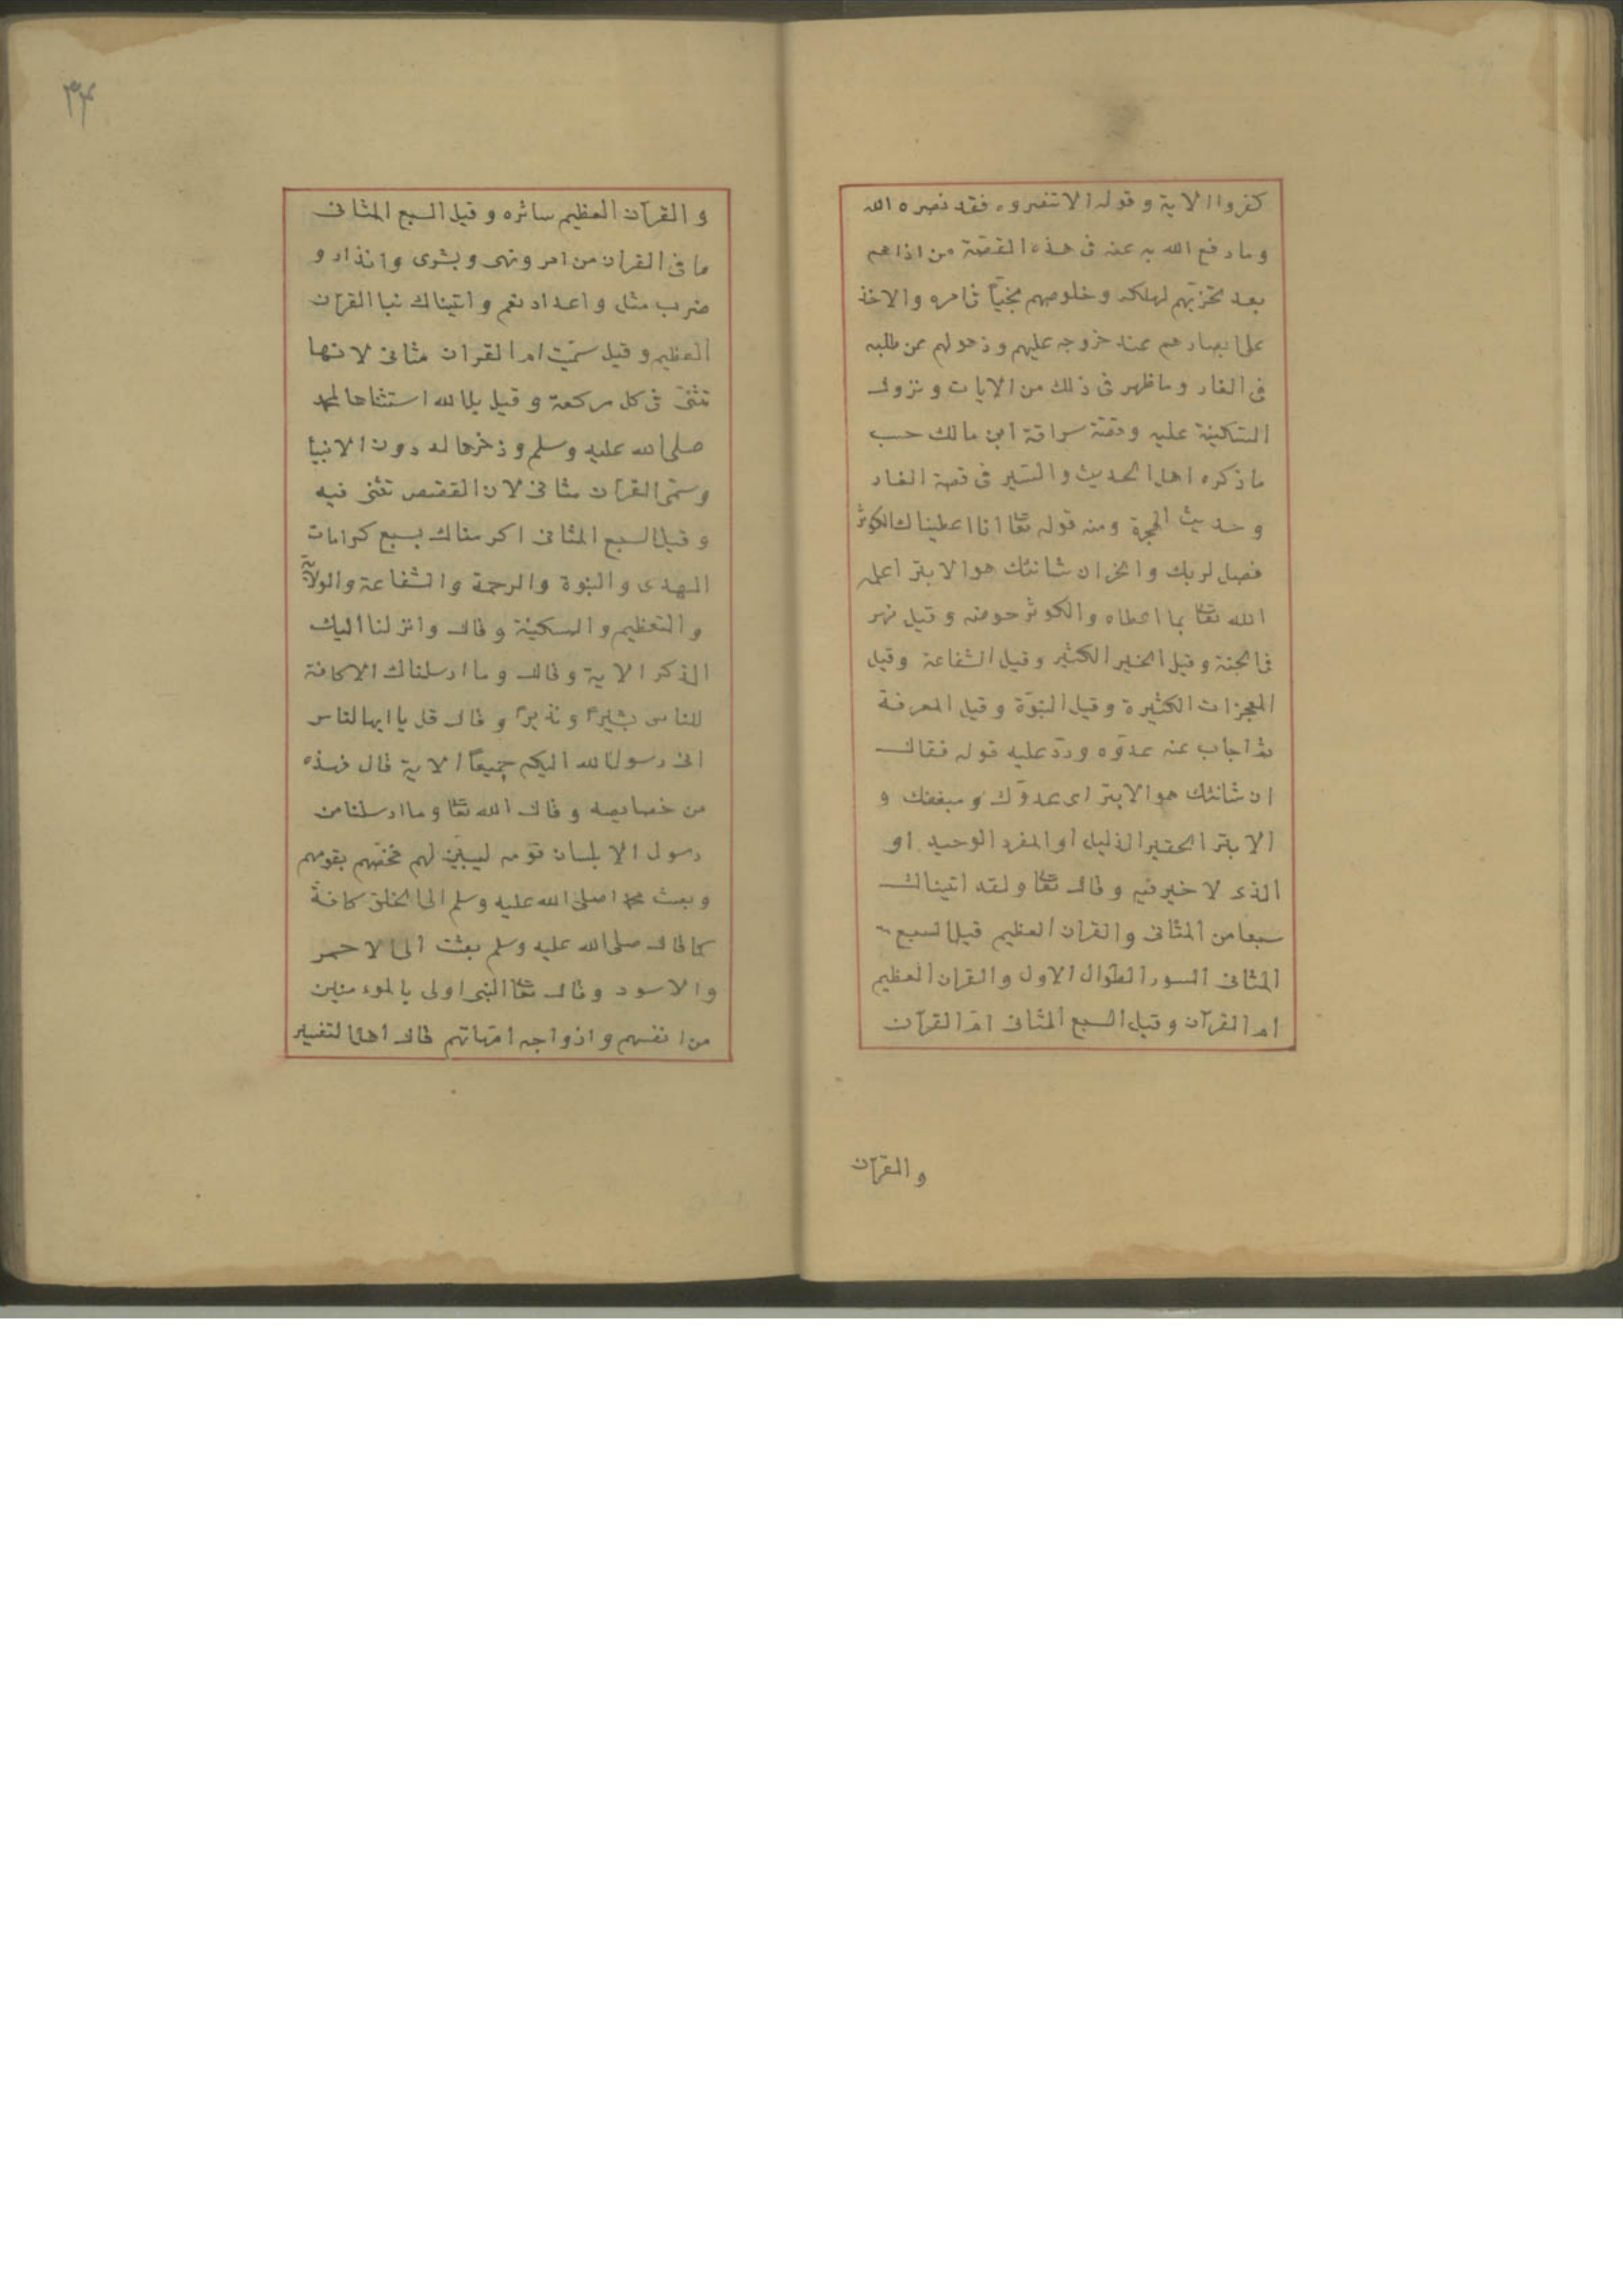 كفروا الاية وقوله الا تنصروه فقد نصره الله
وما دفع الله به عنه فى هذه القصّة من اذاهم
بعد تحزبّهم لهلكه وخلوصهم نجيّا فى امره والاخذ
على ابصارهم عند خروجه عليهم وذهولهم عن طلبه
فى الغار وما ظهر فى ذلك من الايات ونزول
السّكينة عليه وقصّة سراقة ابن مالك حسب
ما ذكره اهل الحديث والسّير فى قصة الغار
وحديث الهجرة ومنه قوله تعا انا اعطيناك الكوثر
فصل لربك وانحر ان شانئك هو الابتر اعلمه
الله تعا بما اعطاه والكوثر حوضه وقيل نهر
فى الجنة وقيل الخير الكثير وقيل الشفاعة وقيل
المعجزات الكثيرة وقيل النبوّة وقيل المعرفة
ثم اجاب عنه عدوّه وردّ عليه قوله فقال
ان شانئك هو الابتر اى عدوّك ومبغضك و
الابتر الحقير الذليل او المفرد الوحيد او
الذى لا خير فيه وقال تعا ولقد اتيناك
سبعا من المثانى والقران العظيم قيل السبع
المثانى السور الطوال الاول والقران العظيم
ام القرآن وقيل السبع المثانى امّ القرآن
والقرآن
٣٤
والقرآن العظيم سائره وقيل السبع المثانى
ما فى القران من امر ونهى وبشرى وانذار و
ضرب مثل واعداد نعم واتيناك نبا القرآن
العظيم وقيل سمّيت ام القران مثانى لانها
تثنى فى كل ركعة وقيل بل الله استثناها لمحمد
صلى الله عليه وسلم وذخرها له دون الانبيا
وسمّى القرآن مثانى لان القصص تثنى فيه
وقيل السبع المثانى اكرمناك بسبع كرامات
الهدى والنبوة والرحمة والشفاعة والولاية
والتعظيم والسكينة وقال وانزلنا اليك
الذكر الاية وقال وما ارسلناك الا كافة
للناس بشيرًا ونذيرًا وقال قل يا ايها لناس
انى رسول الله اليكم جميعًا الاية قال فهذه
من خصايصه وقال الله تعا وما ارسلنا من
رسول الا بلسان قومه ليبيّن لهم فخصّهم بقومهم
وبعث محمدا صلى الله عليه وسلم الى الخلق كافة
كما قال صلى الله عليه وسلم بعثت الى الاحمر
والاسود وقال تعا النبى اولى بالموء منين
من انفسهم وازواجه امّهاتهم قال اهل التفسير